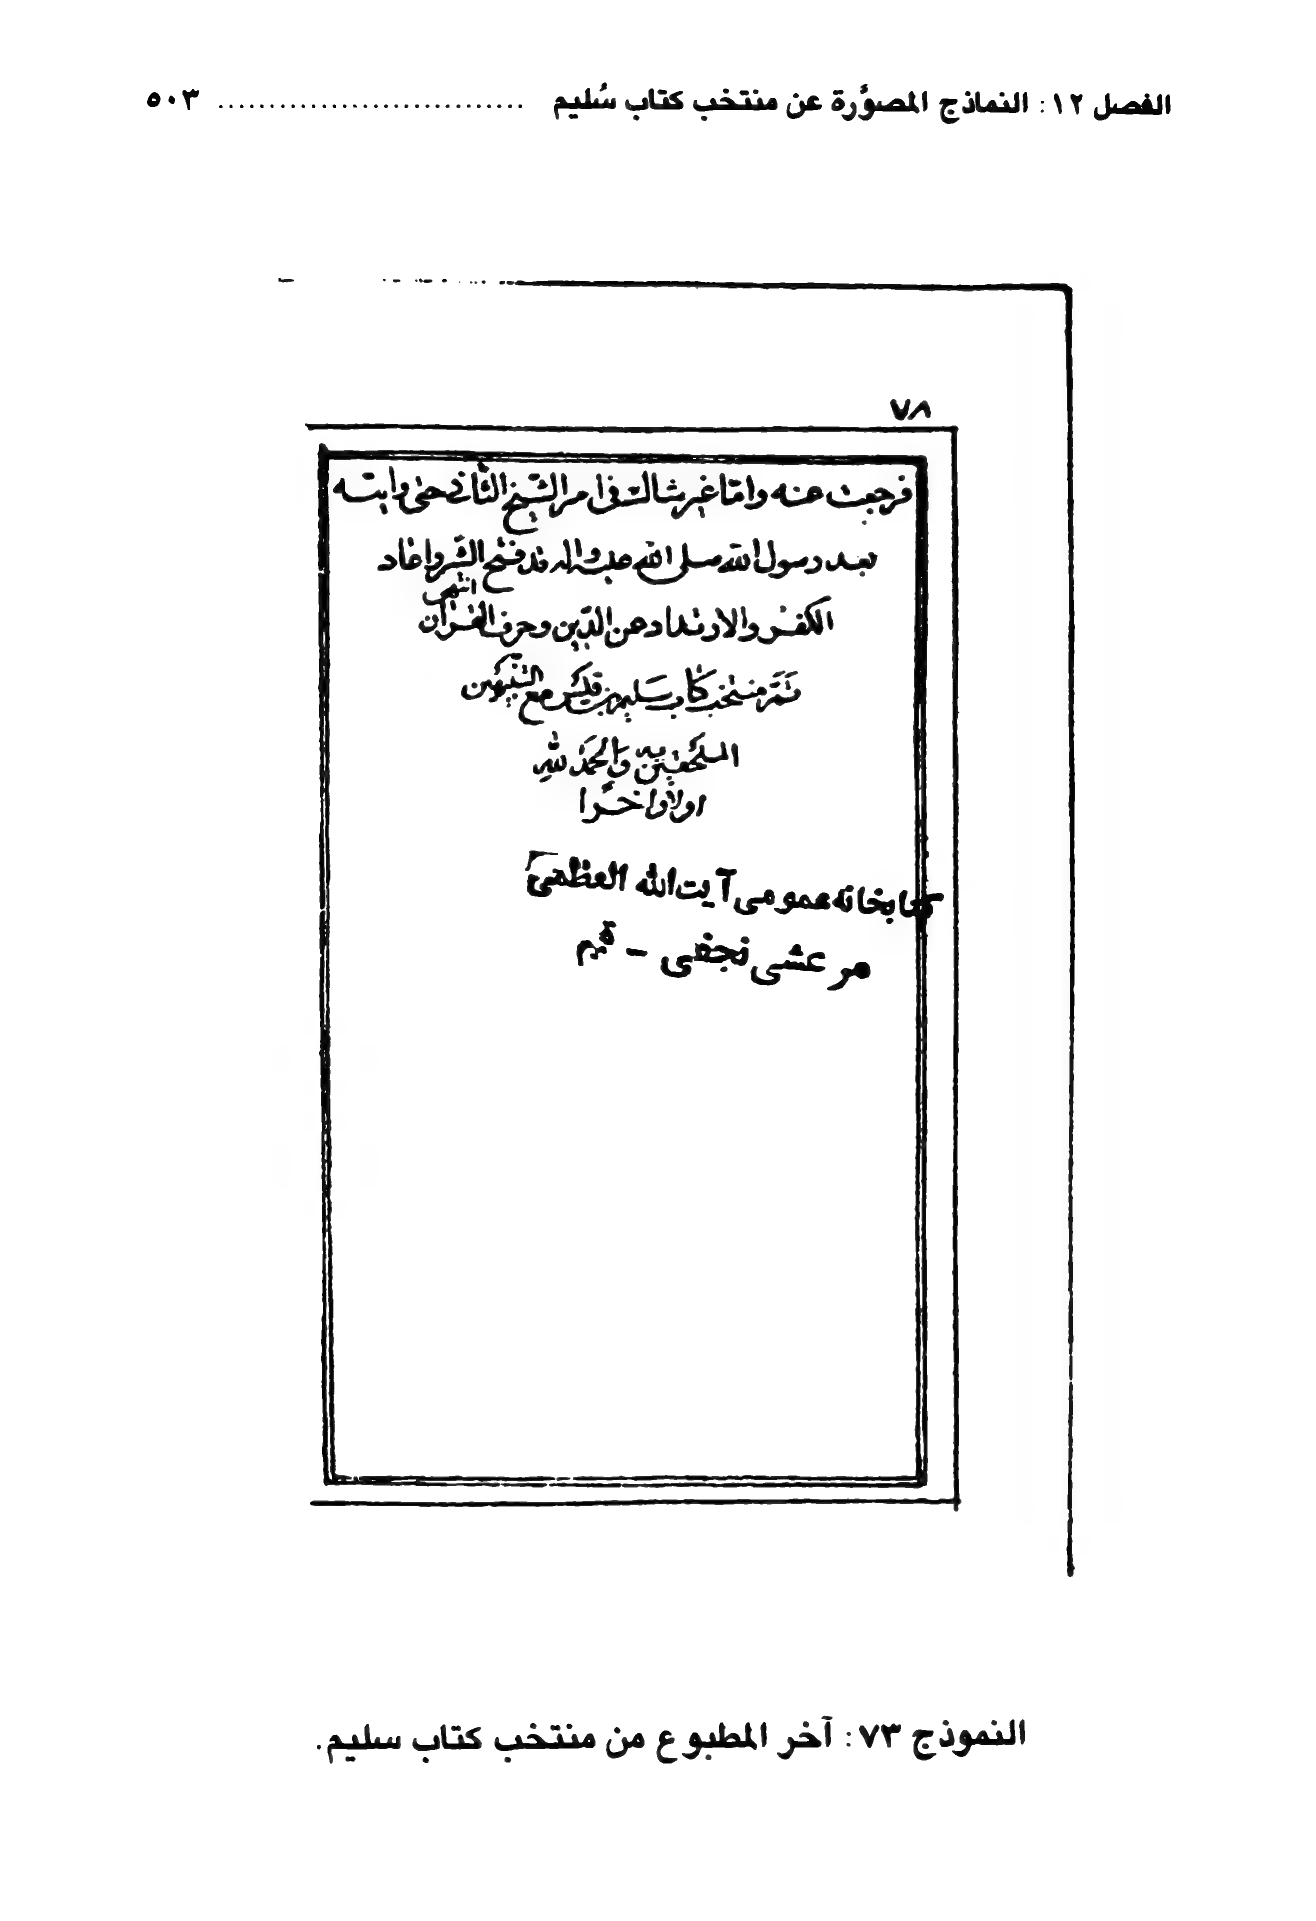 الفصل ١٢: النماذج المصوَّرة عن منتخب كتاب سُليم .............................. ٥٠٣
٧٨
فرجعت عنه وامّا غير شاك فى امر الشّيخ الثّانى حتى رايته
بعد رسول الله صلى الله عليه واله قد فتح الشّر واعاد
الكفر والارتداد عن الدّين وحرف القرآن انتهى
تمّ منتخب كتاب سليم بن قيس مع التنبيهين
الملحقين به والحمد لله
اولا واخرا
كتابخانه عمومى آيت الله العظمى
مرعشى نجفى - قم
النموذج ٧٣: آخر المطبوع من منتخب كتاب سليم.